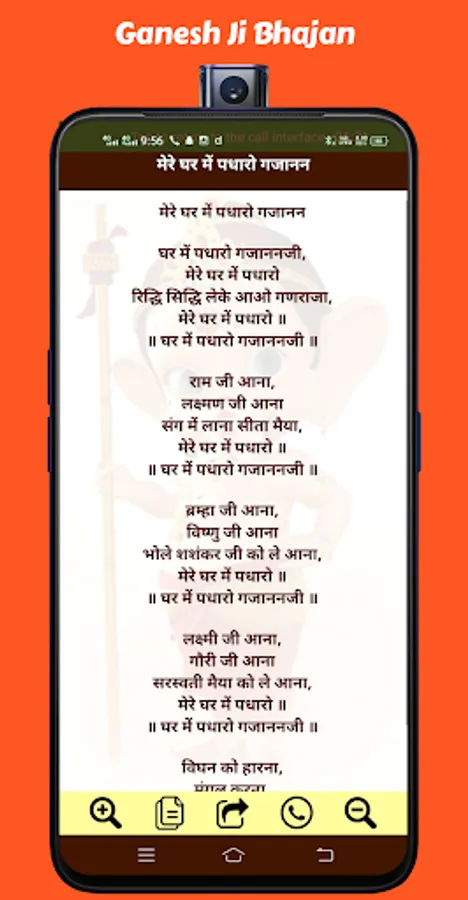 Ganesh Ji Bhajan
9:56
the call interface
मेरे घर में पधारो गजानन
मेरे घर में पधारो गजानन
घर में पधारो गजाननजी,
मेरे घर में पधारो
रिद्धि सिद्धि लेके आओ गणराजा,
मेरे घर में पधारो ॥
॥ घर में पधारो गजाननजी ॥
राम जी आना,
लक्ष्मण जी आना
संग में लाना सीता मैया,
मेरे घर में पधारो ॥
॥ घर में पधारो गजाननजी ॥
ब्रम्हा जी आना,
विष्णु जी आना
भोले शशंकर जी को ले आना,
मेरे घर में पधारो ॥
॥ घर में पधारो गजाननजी ॥
लक्ष्मी जी आना,
गौरी जी आना
सरस्वती मैया को ले आना,
मेरे घर में पधारो ॥
॥ घर में पधारो गजाननजी ॥
विघन को हारना,
मंगल करना